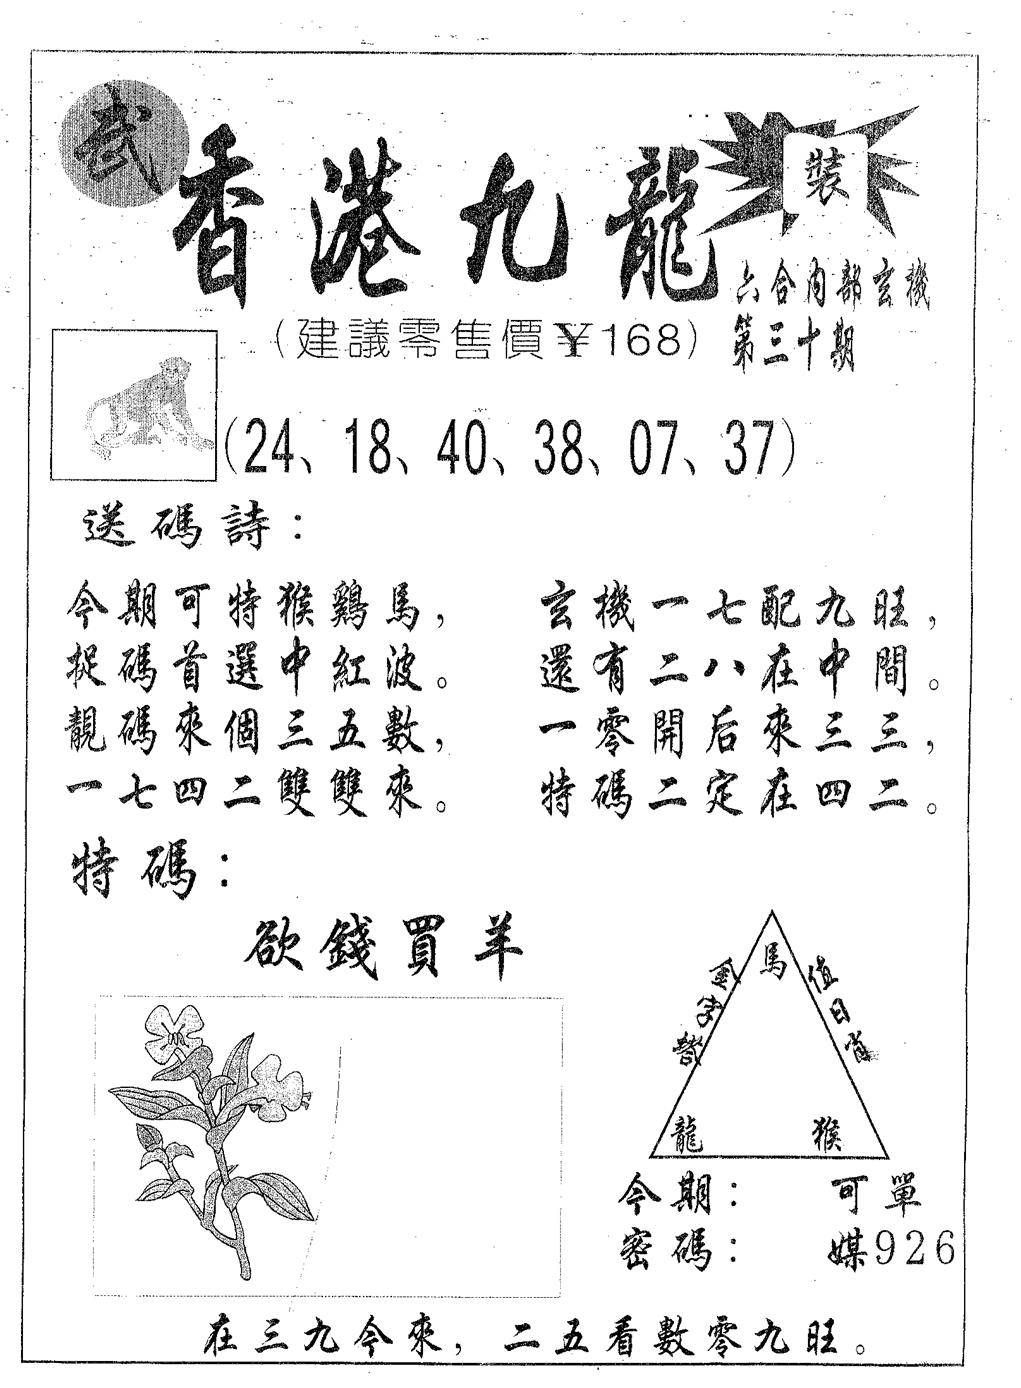 武
香港九龍
裝
六合内部玄機
(建議零售價¥168)
第三十期
(24、18、40、38、07、37)
送碼詩：
今期可特猴鷄馬，
捉碼首選中紅波。
靚碼來個三五數，
一七四二雙雙來。
玄機一七配九旺，
還有二八在中間。
一零開后來三三，
特碼二定在四二。
特碼：
欲錢買羊
馬
值日肖
龍
猴
今期：可單
密碼：媒926
在三九今來，二五看數零九旺。